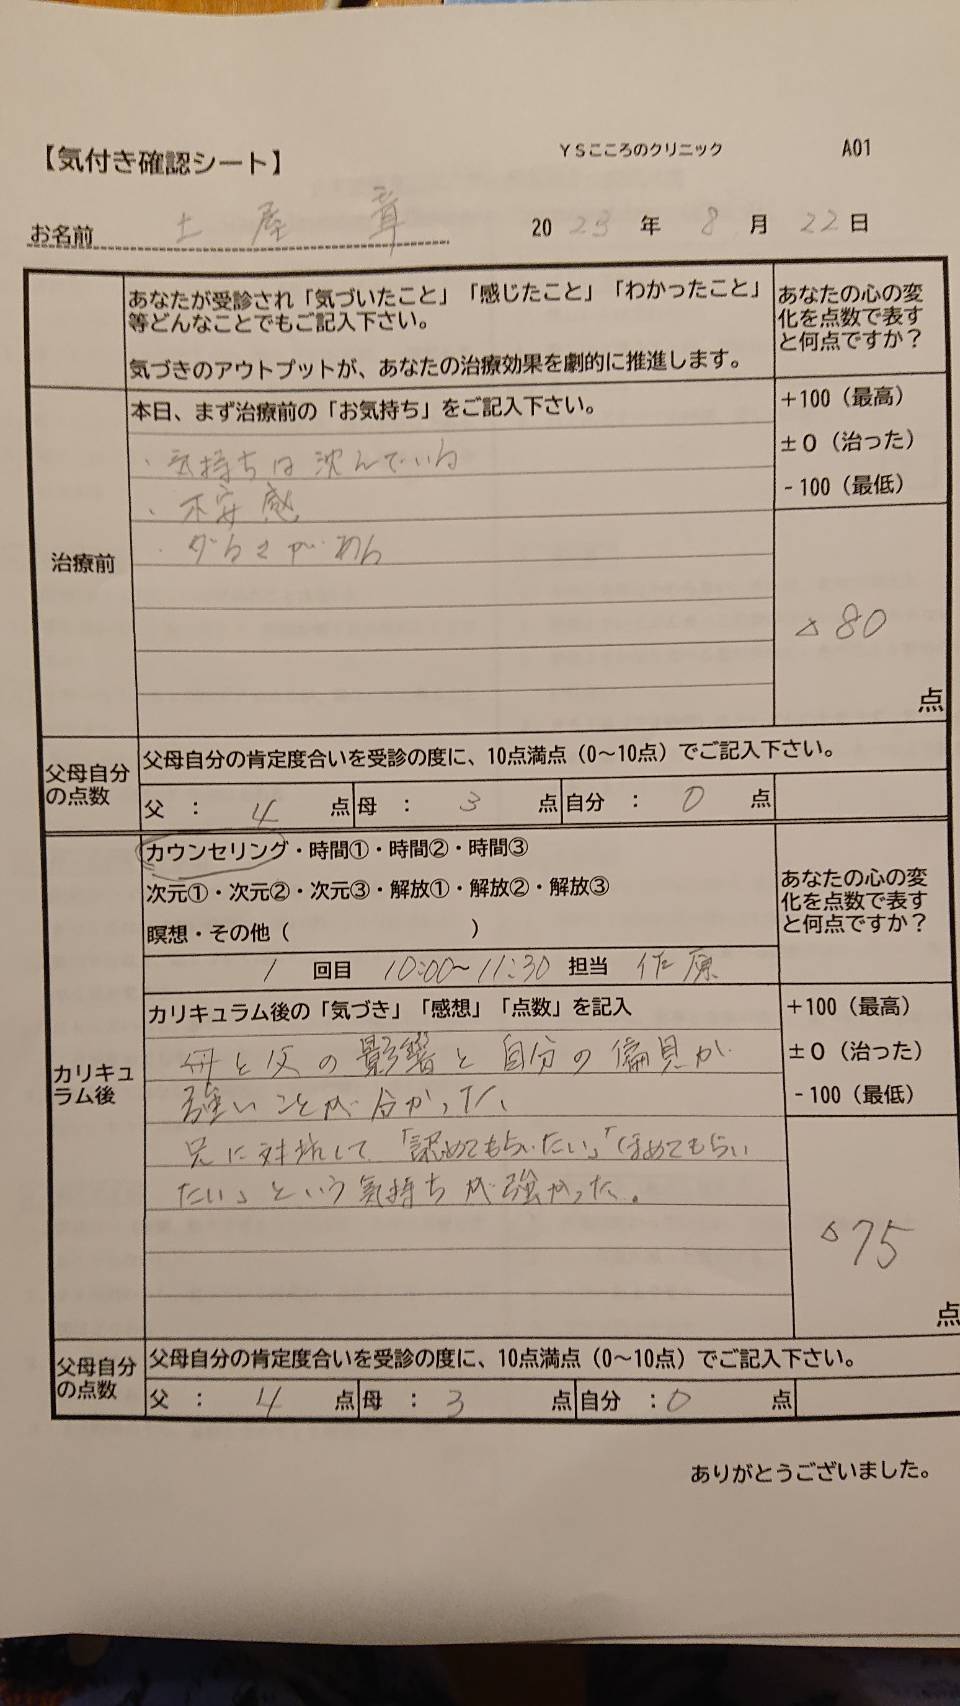 【気付き確認シート】
YSこころのクリニック
A01
お名前 土屋 章
2023年8月22日
あなたが受診され「気づいたこと」「感じたこと」「わかったこと」
等どんなことでもご記入下さい。
気づきのアウトプットが、あなたの治療効果を劇的に推進します。
あなたの心の変
化を点数で表す
と何点ですか？
治療前
本日、まず治療前の「お気持ち」をご記入下さい。
・気持ちは沈んでいる
・不安感
・ダルさがある
+100（最高）
±0（治った）
-100（最低）
△80
点
父母自分
の点数
父母自分の肯定度合いを受診の度に、10点満点（0～10点）でご記入下さい。
父 ： 4 点 母 ： 3 点 自分 ： 0 点
カリキュ
ラム後
カウンセリング・時間①・時間②・時間③
次元①・次元②・次元③・解放①・解放②・解放③
瞑想・その他（ ）
1 回目 10:00～11:30 担当 佐原
あなたの心の変
化を点数で表す
と何点ですか？
カリキュラム後の「気づき」「感想」「点数」を記入
母と父の影響と自分の偏見が
強いことが分かった、
兄に対抗して「認めてもらいたい」「ほめてもらい
たい」という気持ちが強かった。
+100（最高）
±0（治った）
-100（最低）
△75
点
父母自分
の点数
父母自分の肯定度合いを受診の度に、10点満点（0～10点）でご記入下さい。
父 ： 4 点 母 ： 3 点 自分 ：0 点
ありがとうございました。